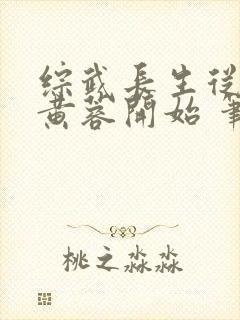 综武长生从
黄蓉開始 筆
桃之淼淼